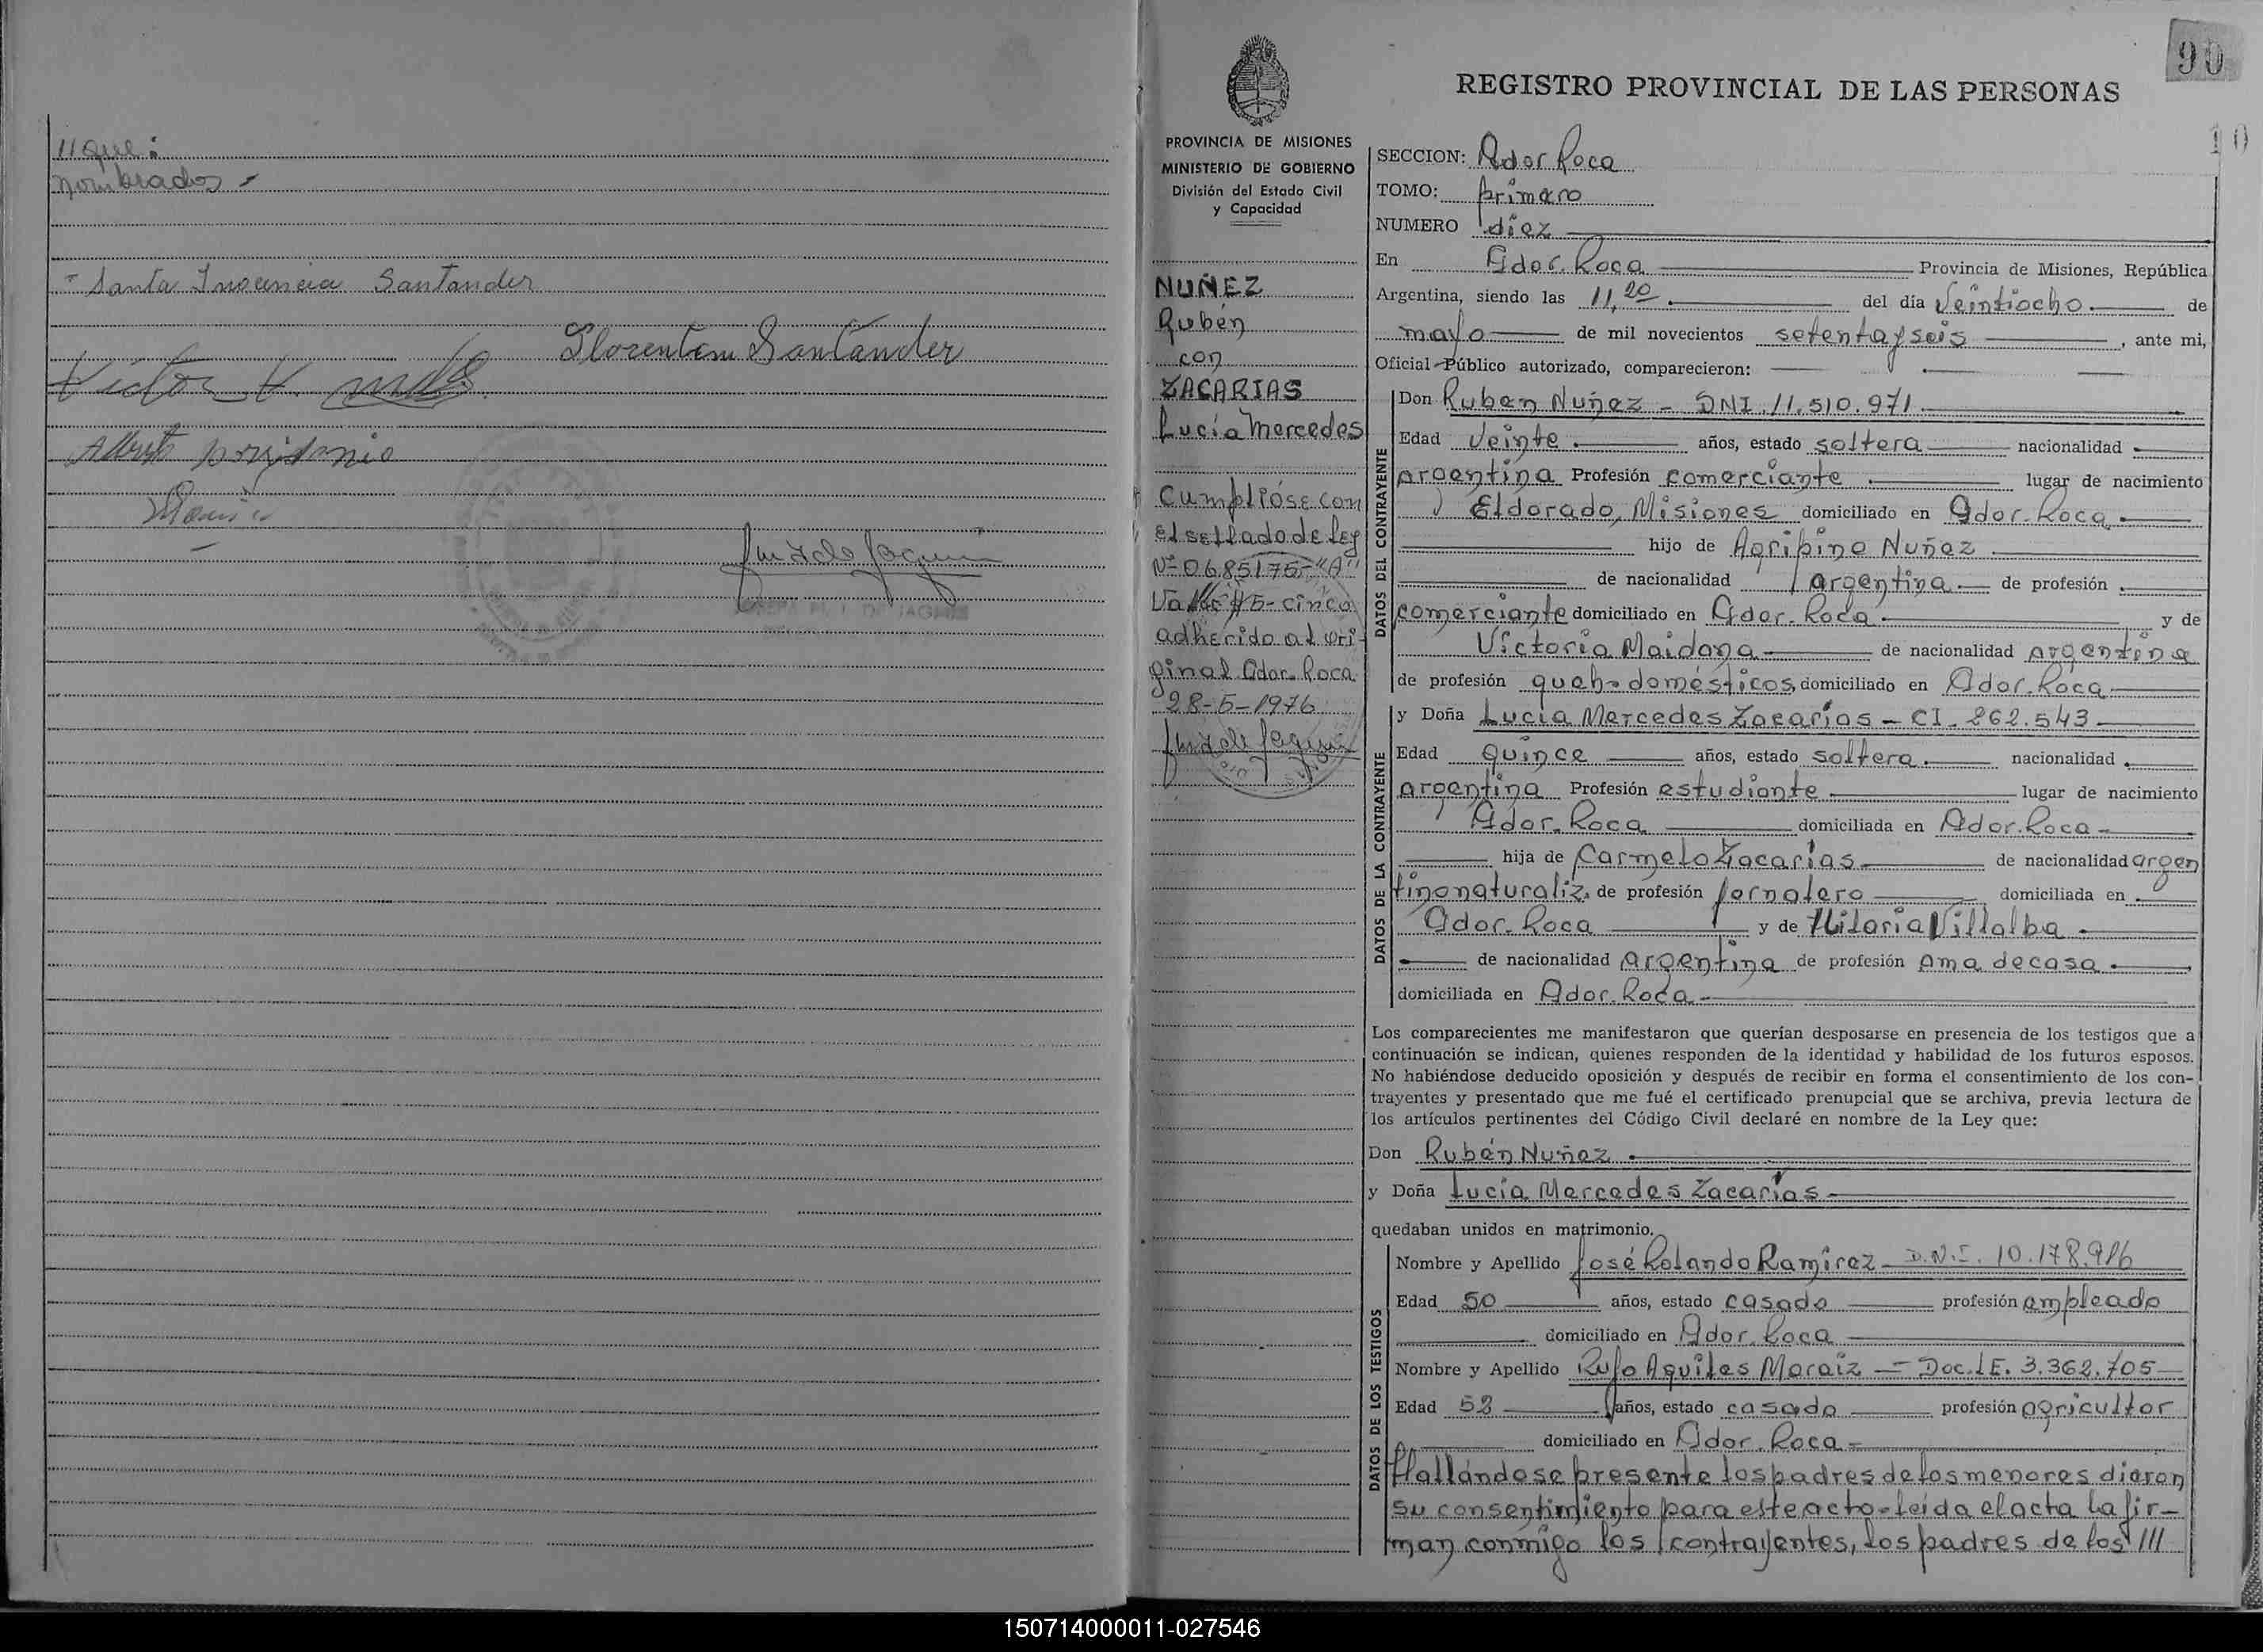 //que:
nombrados -
- Santa Inocencia Santander
Florentin Santander
Victor V.
Alberto
90
REGISTRO PROVINCIAL DE LAS PERSONAS
10
PROVINCIA DE MISIONES
MINISTERIO DE GOBIERNO
División del Estado Civil
y Capacidad
NUÑEZ
Rubén
con
ZACARIAS
Lucía Mercedes
Cumplióse con
el sellado de Ley
Nº 0685175-"A"
Valor $ 5- cinco
adherido al ori-
ginal Gdor. Roca
28-5-1976
SECCION: Gdor Roca
TOMO: primero
NUMERO diez
En Gdor. Roca Provincia de Misiones, República
Argentina, siendo las 11,20 del día Veintiocho de
mayo de mil novecientos setenta y seis, ante mi,
Oficial Público autorizado, comparecieron:
DATOS DEL CONTRAYENTE
Don Ruben Nuñez - DNI. 11.510.971
Edad Veinte años, estado soltera nacionalidad
argentina Profesión comerciante lugar de nacimiento
Eldorado, Misiones domiciliado en Gdor. Roca
hijo de Agripino Nuñez
de nacionalidad argentina de profesión
comerciante domiciliado en Gdor. Roca y de
Victoria Maidana de nacionalidad argentina
de profesión queh. domésticos, domiciliado en Gdor. Roca
DATOS DE LA CONTRAYENTE
y Doña Lucia Mercedes Zacarías - CI. 262.543
Edad quince años, estado soltera nacionalidad
argentina Profesión estudiante lugar de nacimiento
Gdor. Roca domiciliada en Gdor. Roca
hija de Carmelo Zacarías de nacionalidad argen
tino naturaliz. de profesión jornalero domiciliada en
Gdor. Roca y de Hilaria Villalba
de nacionalidad argentina de profesión ama de casa
domiciliada en Gdor. Roca
Los comparecientes me manifestaron que querían desposarse en presencia de los testigos que a
continuación se indican, quienes responden de la identidad y habilidad de los futuros esposos.
No habiéndose deducido oposición y después de recibir en forma el consentimiento de los con-
trayentes y presentado que me fué el certificado prenupcial que se archiva, previa lectura de
los artículos pertinentes del Código Civil declaré en nombre de la Ley que:
Don Rubén Nuñez
y Doña Lucía Mercedes Zacarías
quedaban unidos en matrimonio.
DATOS DE LOS TESTIGOS
Nombre y Apellido José Rolando Ramírez - D.N.I. 10.178.916
Edad 50 años, estado casado profesión empleado
domiciliado en Gdor. Roca
Nombre y Apellido Rufo Aquiles Moraiz - Doc. LE. 3.362.705
Edad 53 años, estado casado profesión agricultor
domiciliado en Gdor. Roca
Hallándose presente los padres de los menores dieron
su consentimiento para este acto - leída el acta la fir-
man conmigo los contrayentes, los padres de los ///
150714000011-027546